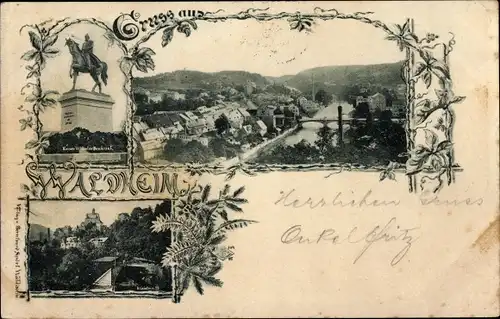 Gruss aus
Kaiser Wilhelm-Denkmal.
WALDHEIM
Herzlichen Gruss
Onkel Fritz